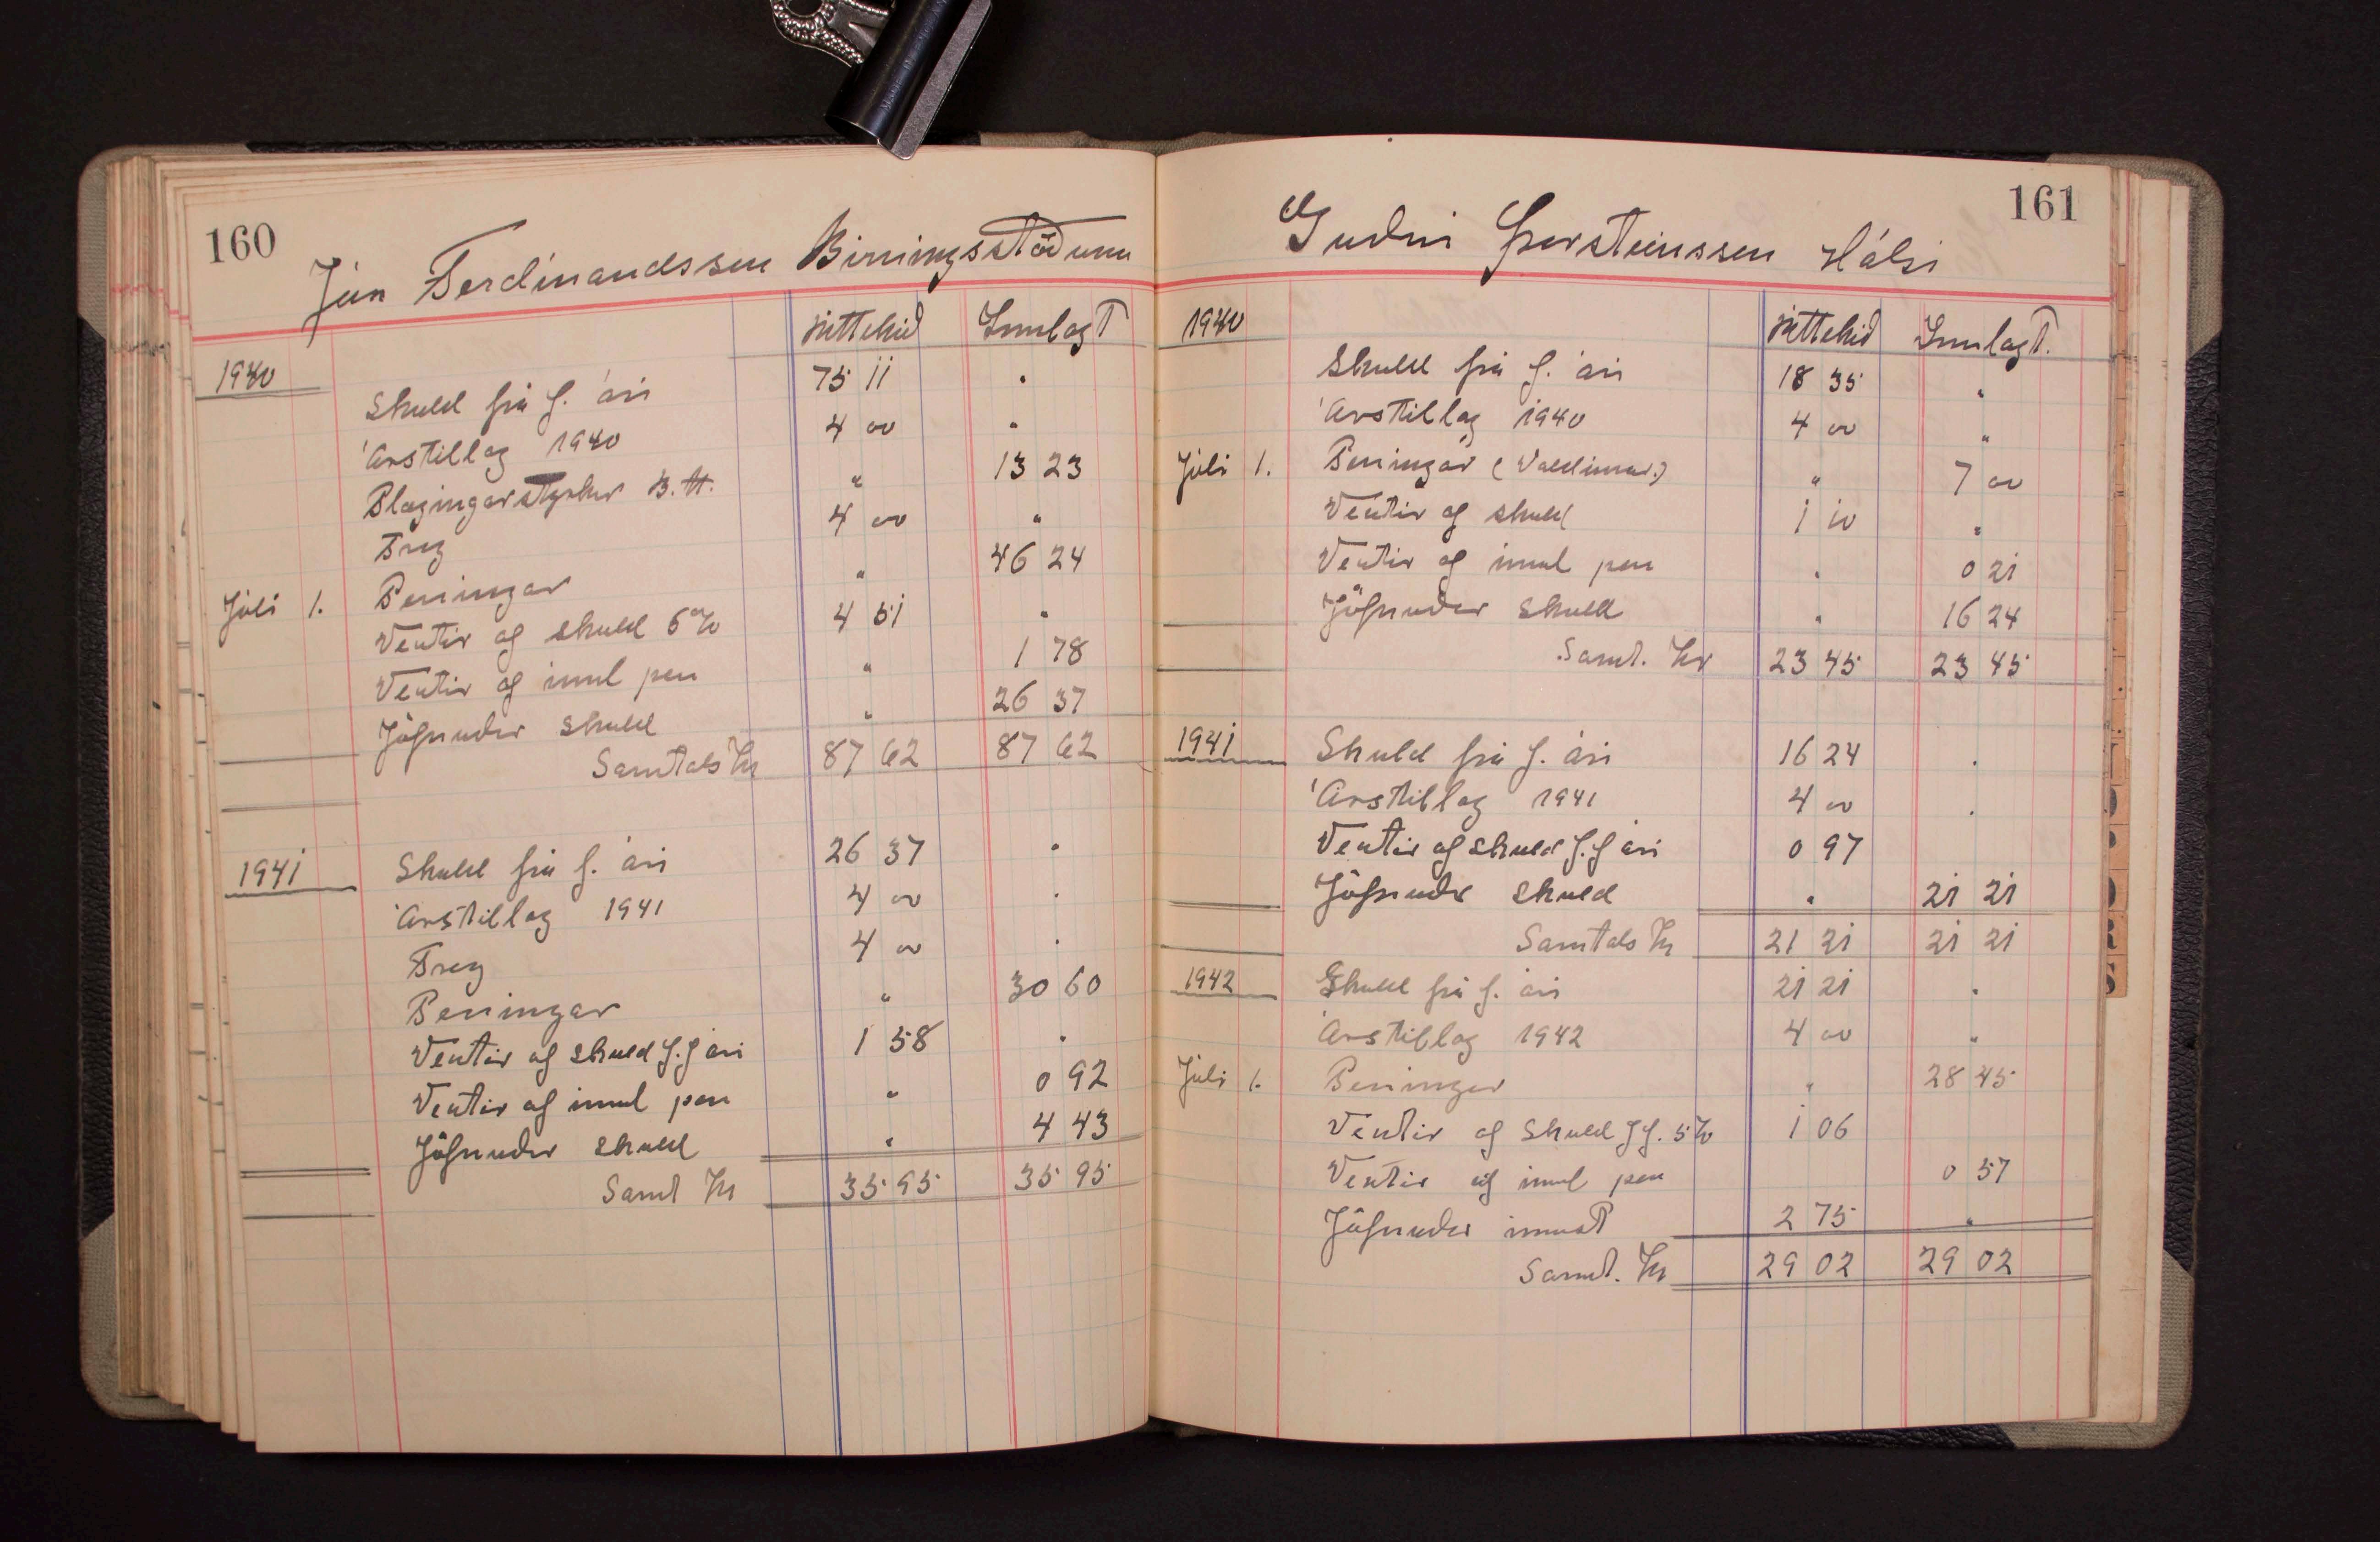 160
Jón Ferdinandsson Birningsstöðum
Úttekið Innlagt
1940
Skuld frá f. ári 75 11 "
Árstillag 1940 4 00 "
Plægingarstyrkur B.H. " 13 23
Fræ 4 00 "
Júli 1. Peningar " 46 24
Vextir af skuld 6% 4 51 "
Vextir af innl pen " 1 78
Jöfnuður skuld " 26 37
Samtals Kr 87 62 87 62
1941 Skuld frá f. ári 26 37 "
Árstillag 1941 4 00 "
Fræ 4 00 "
Peningar " 30 60
Vextir af skuld f.f ári 1 58 "
Vextir af innl pen " 0 92
Jöfnuður skuld " 4 43
Samt Kr 35 95 35 95
161
Guðni Þorsteinsson Hálsi
1940 Úttekið Innlagt.
Skuld frá f. ári 18 35 "
Árstillag 1940 4 00 "
Júli 1. Peningar (Valdimar.) " 7 00
Vextir af skuld 1 10 "
Vextir af innl pen " 0 21
Jöfnuður skuld " 16 24
Samt. Kr 23 45 23 45
1941 Skuld frá f. ári 16 24 "
Árstillag 1941 4 00 "
Vextir af skuld f.f ári 0 97
Jöfnuðr skuld " 21 21
Samtals Kr 21 21 21 21
1942 Skuld frá f. ári 21 21 "
Árstillag 1942 4 00 "
Júli 1. Peningar " 28 45
Vextir af skuld f f. 5% 1 06
Vextir af innl pen 0 57
Jöfnuður innst 2 75 "
Samt. Kr 29 02 29 02